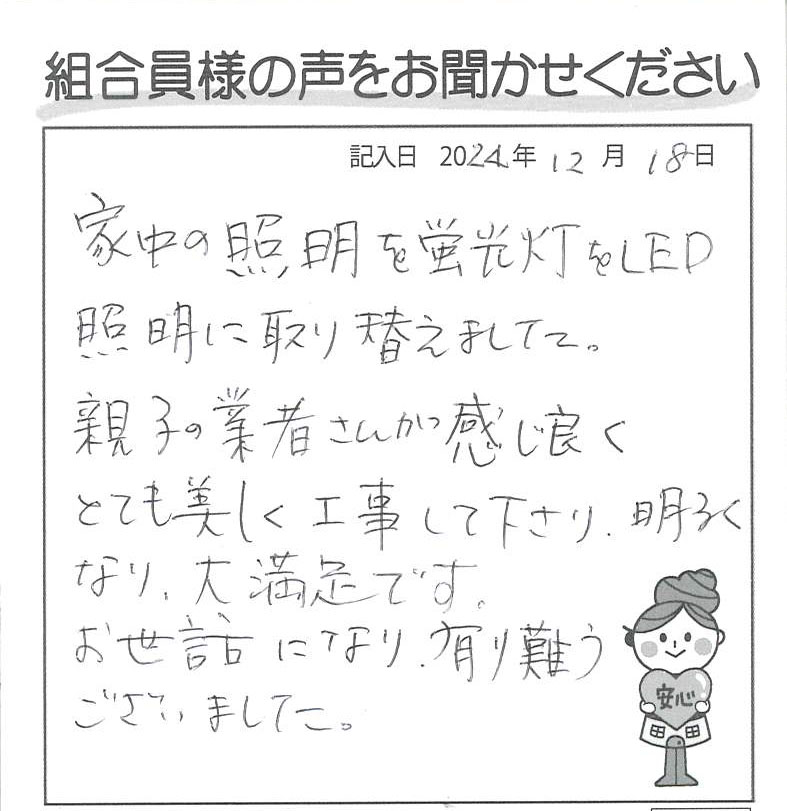 組合員様の声をお聞かせください
記入日 2024年 12月 18日
家中の照明を蛍光灯をLED
照明に取り替えましてた。
親子の業者さんが感じ良く
とても美しく工事して下さり、明るく
なり、大満足です。
お世話になり、有り難う
ございましてた。
安心